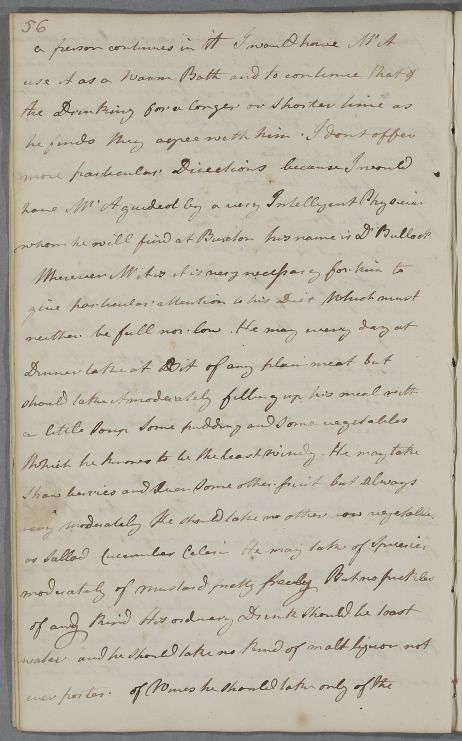 56
a person continues in it I would have Mr A
use it as a Warm Bath and to continue that of
the Drinking for a longer or shorter time as
he finds they agree with him. I dont offer
more particular Directions because I would
have Mr A guided by a very Intelligent Physician
whom he will find at Buxton his name is Dr Bullock
Wherever Mr A is it is very necessary for him to
give particular attention to his Diet Which must
neither be full nor low. He may every day at
Dinner take a Bit of any plain meat but
should take it moderately filling up his meal with
a little Soup Some pudding and Some vegetables
Which he knows to be the least windy. He may take
Straw berries and even Some other fruit but always
very moderately He should take no other raw vegetable
as Sallad Cucumber Celeri He may take of Spiceries
moderately of mustard pretty freely But no pickles
of any kind His ordinary Drink Should be toast
water and he should take no kind of malt liquor not
even porter. of Wines he should take only of the